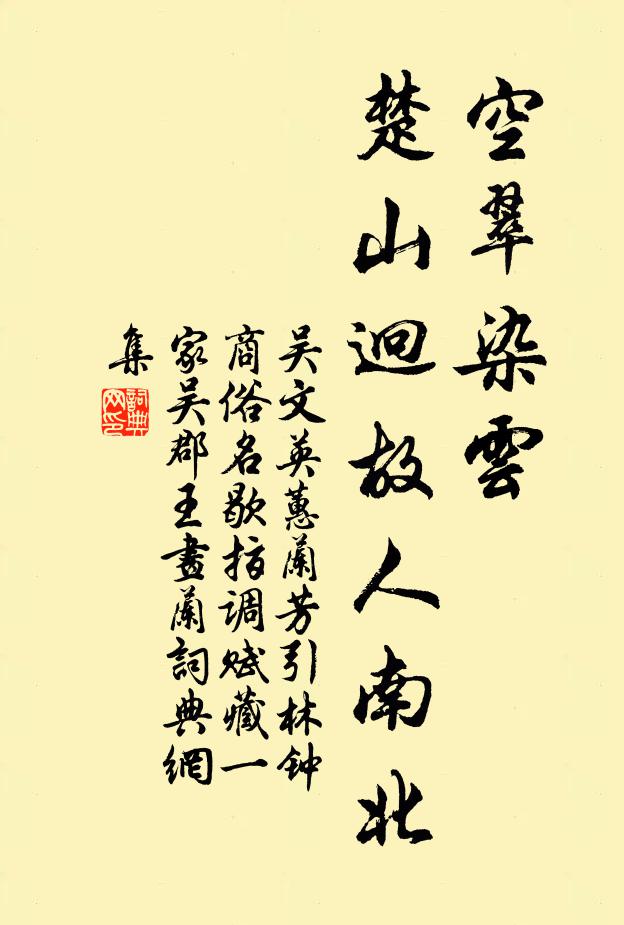 空翠染雲
楚山迥故人南北
吴文英蕙蘭芳引林钟
商俗名歇指调赋藏一
家吴郡王畫蘭詞典網
集
詞典
网印